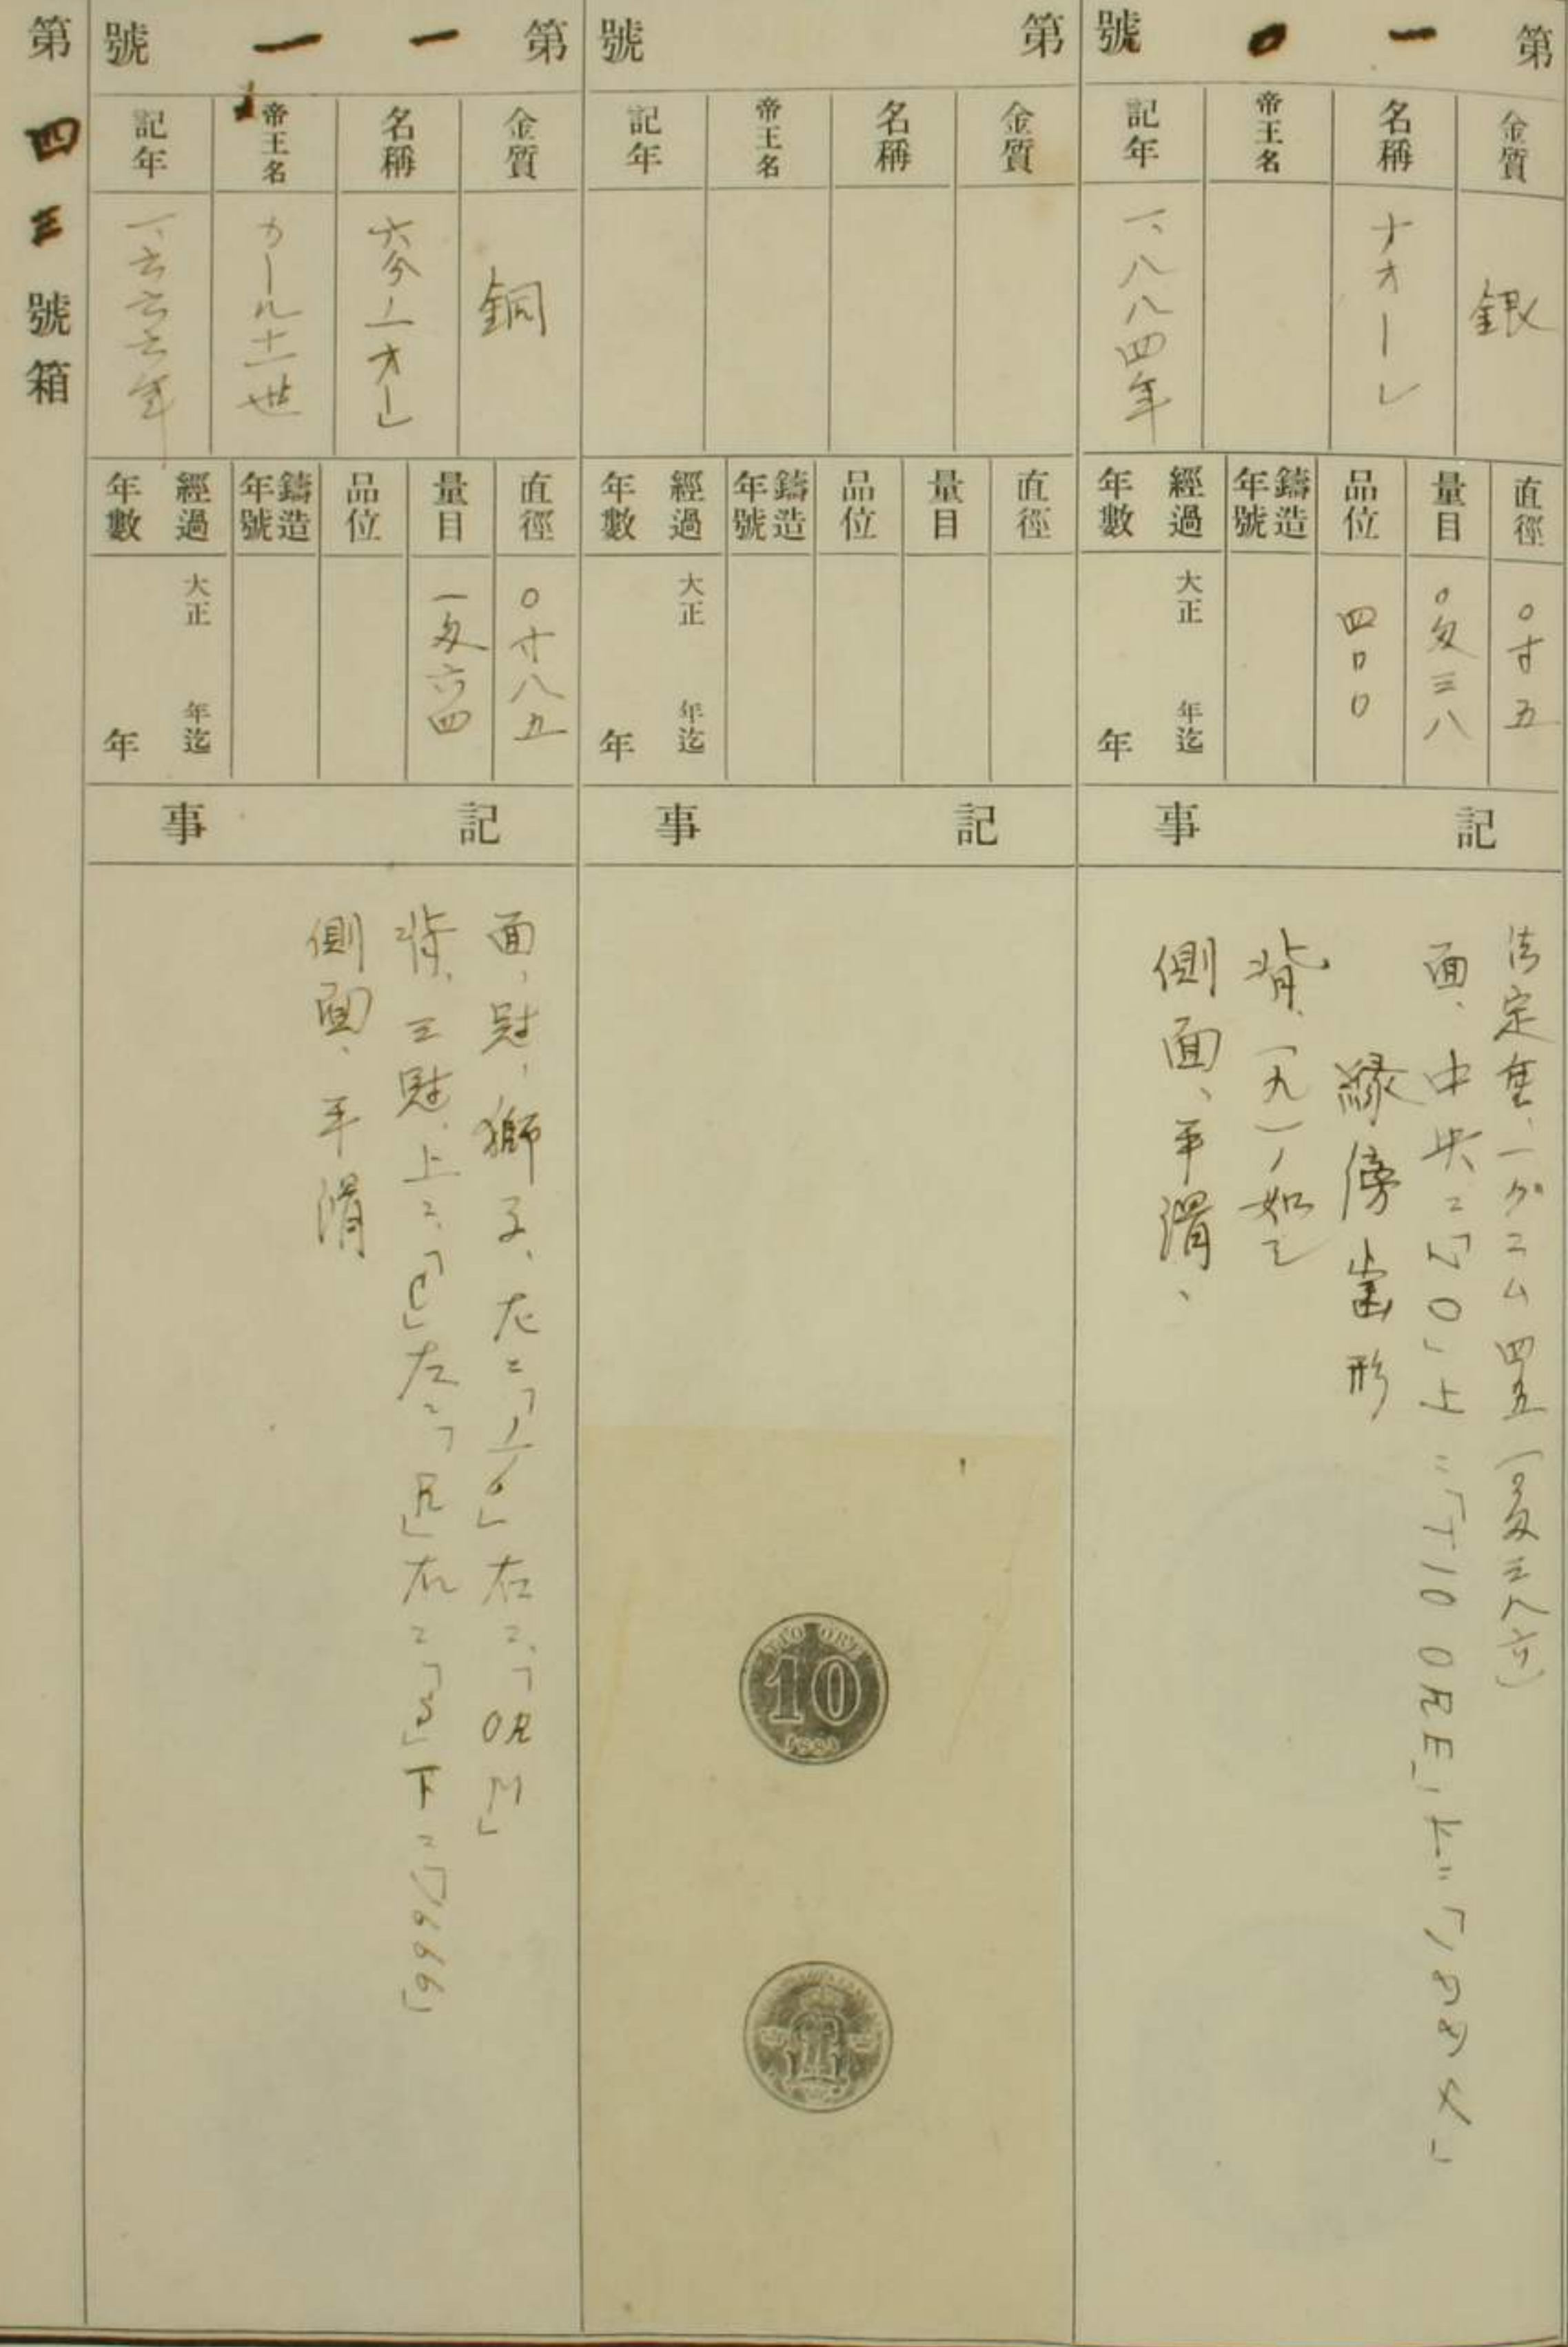 第一〇號
金質
銀
名稱
十オーレ
帝王名
記年
一、八八四年
直徑
〇寸五
量目
〇匁三八
品位
四〇〇
鑄造年號
經過年數
大正 年迄
年
記事
法定量、一グラム四五(〇匁三八六)
面、中央ニ「10」上ニ「TIO ORE」下ニ「1884」
緣傍歯形
背、(九)ノ如シ
側面、平滑、
第 號
金質
名稱
帝王名
記年
直徑
量目
品位
鑄造年號
經過年數
大正 年迄
年
記事
TIO ORE
10
第一一號
金質
銅
名稱
六分ノ一オーレ
帝王名
カール十一世
記年
一、六六六年
直徑
〇寸八五
量目
一匁六四
品位
鑄造年號
經過年數
大正 年迄
年
記事
面、冠、獅子、左ニ「1/6」右ニ、「OR M」
背、三冠、上ニ、「C」左ニ「R」右ニ「S」下ニ「1666」
側面、平滑
第四三號箱